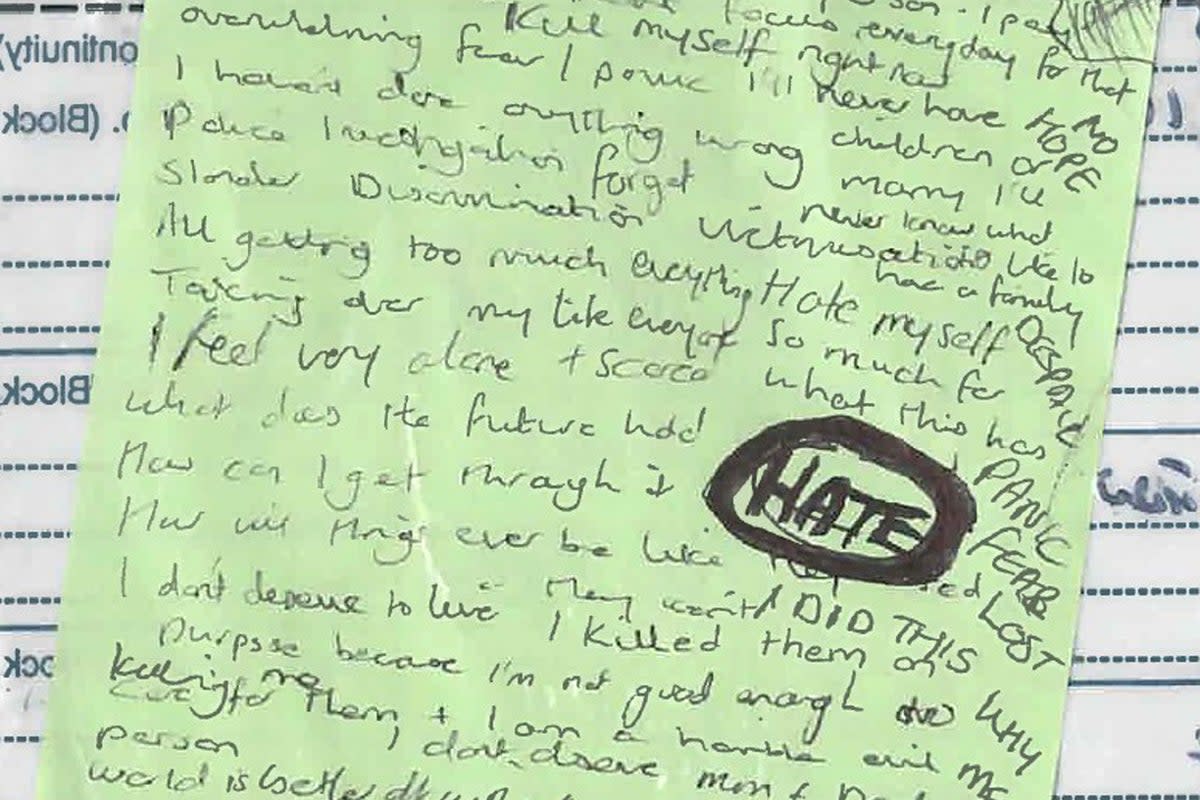 overwhelming fear / panic
Kill myself right now
focus everyday for that
I'll never have
children or
marry I'll
never know what
like to
have a family
NO
HOPE
I haven't done anything wrong
Police Investigation forget
Slander Discrimination Victimisation
All getting too much everything
Taking over my life everyday
Hate myself
so much for
what this has
DESPAIR
I feel very alone + scared
What does the future hold
How can I get through it
How will things ever be like
HATE
PANIC
FEAR
LOST
I don't deserve to live
They won't
I DID THIS
WHY
ME
I killed them on
purpose because I'm not good enough to
killing me
care for them + I am a horrible evil
person I don't deserve mum +
world is better off
ontinuity)
. (Block
Block